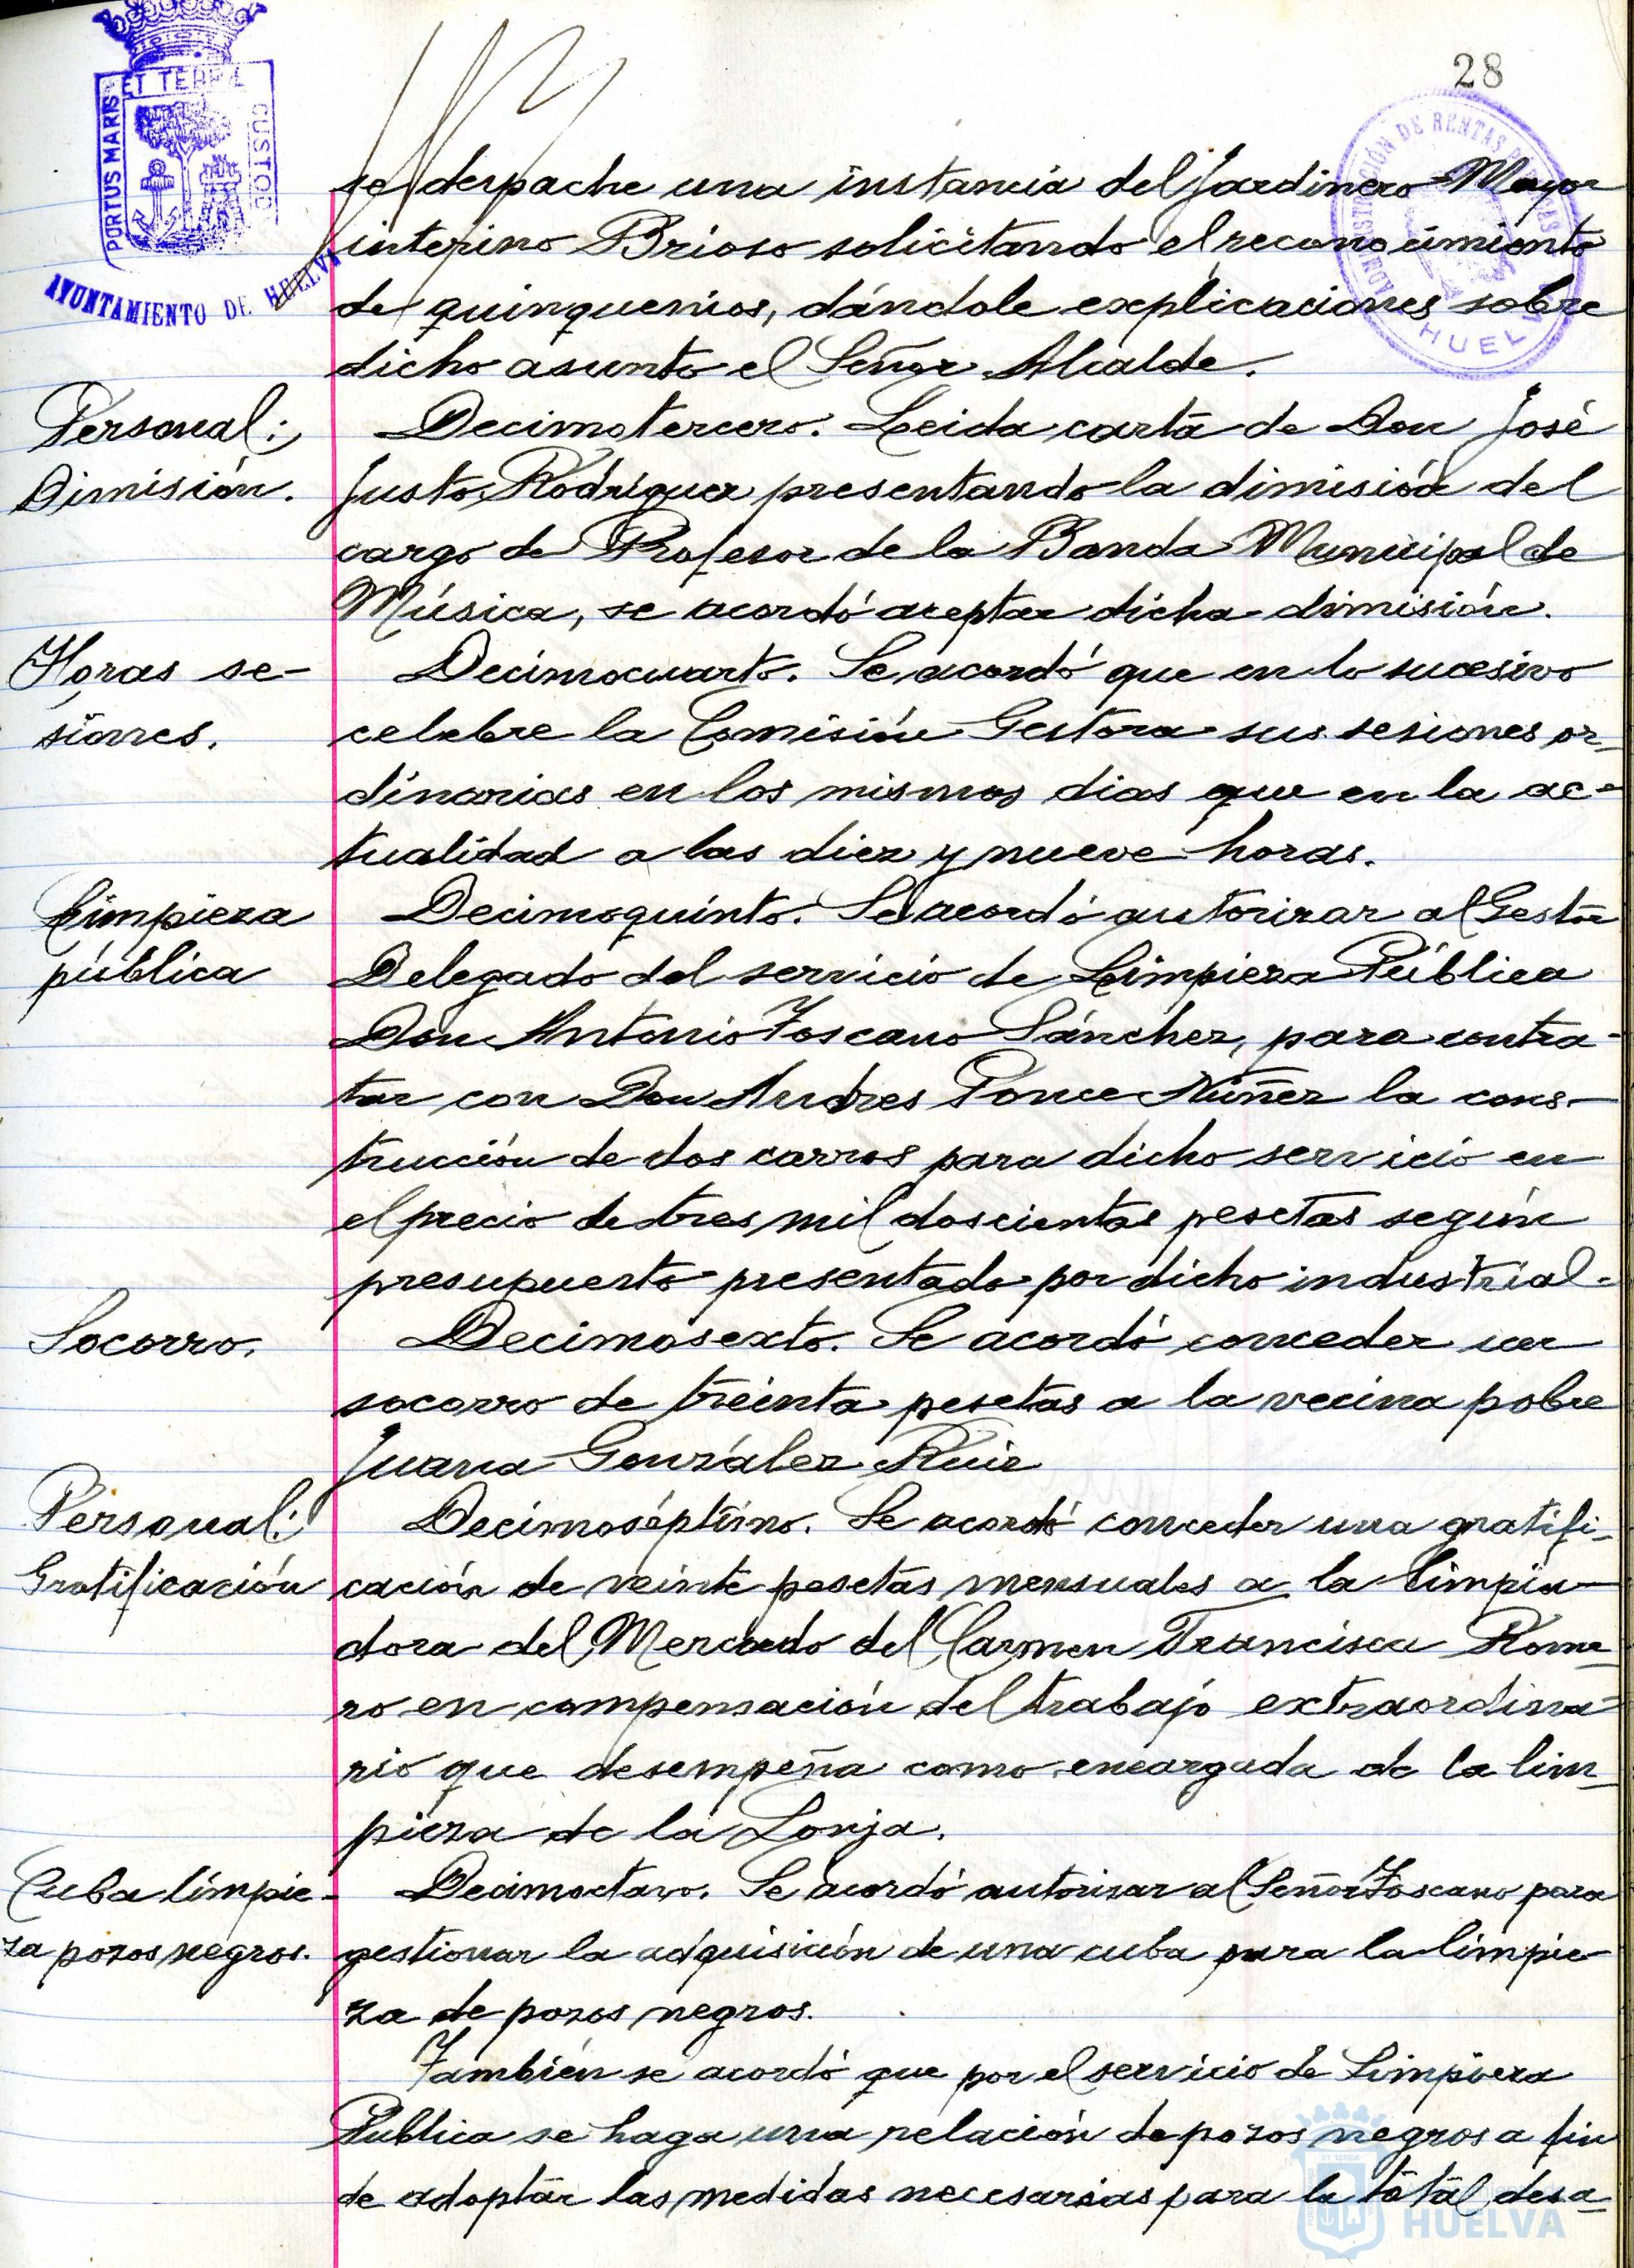 28
ET TERRÆ
PORTUS MARIS
CUSTODI
AYUNTAMIENTO DE HUELVA
ADMINISTRACIÓN DE RENTAS
HUELVA
se despache una instancia del Jardinero Mayor
interino Brioso solicitando el reconocimiento
de quinquenios, dándole explicaciones sobre
dicho asunto el Señor Alcalde.
Personal:
Dimisión.
Decimotercero. Leida carta de Don José
Justo Rodríguez presentando la dimisión del
cargo de Profesor de la Banda Municipal de
Música, se acordó aceptar dicha dimisión.
Horas se-
siones.
Decimocuarto. Se acordó que en lo sucesivo
celebre la Comisión Gestora sus sesiones or-
dinarias en los mismos dias que en la ac-
tualidad a las diez y nueve horas.
Limpieza
pública
Decimoquinto. Se acordó autorizar al Gestor
Delegado del servicio de Limpieza Pública
Don Antonio Toscano Sánchez, para contra-
tar con Don Andres Ponce Núñez la cons-
trucción de dos carros para dicho servicio en
el precio de tres mil doscientas pesetas según
presupuesto presentado por dicho industrial.
Socorro.
Decimosexto. Se acordó conceder un
socorro de treinta pesetas a la vecina pobre
Juana González Ruiz
Personal:
Gratificación
Decimoséptimo. Se acordó conceder una gratifi-
cación de veinte pesetas mensuales a la limpia-
dora del Mercado del Carmen Francisca Rome-
ro en compensación del trabajo extraordina-
rio que desempeña como encargada de la lim-
pieza de la Lonja.
Cuba limpie-
za pozos negros.
Decimoctavo. Se acordó autorizar al Señor Toscano para
gestionar la adquisición de una cuba para la limpie-
za de pozos negros.
También se acordó que por el servicio de Limpieza
Publica se haga una relación de pozos negros a fin
de adoptar las medidas necesarias para la total desa-
HUELVA